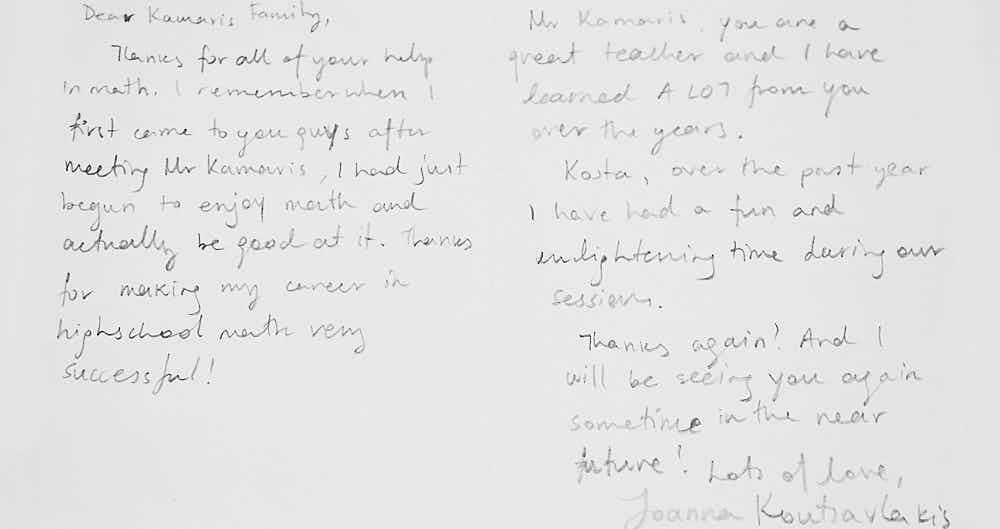 Dear Kamaris Family,
Thanks for all of your help
in math. I remember when I
first came to you guys after
meeting Mr Kamaris, I had just
begun to enjoy math and
actually be good at it. Thanks
for making my career in
highschool math very
successful!
Mr Kamaris, you are a
great teacher and I have
learned A LOT from you
over the years.
Kosta, over the past year
I have had a fun and
enlightening time during our
sessions.
Thanks again! And I
will be seeing you again
sometime in the near
future! Lots of love,
Joanna Koutsavlakis